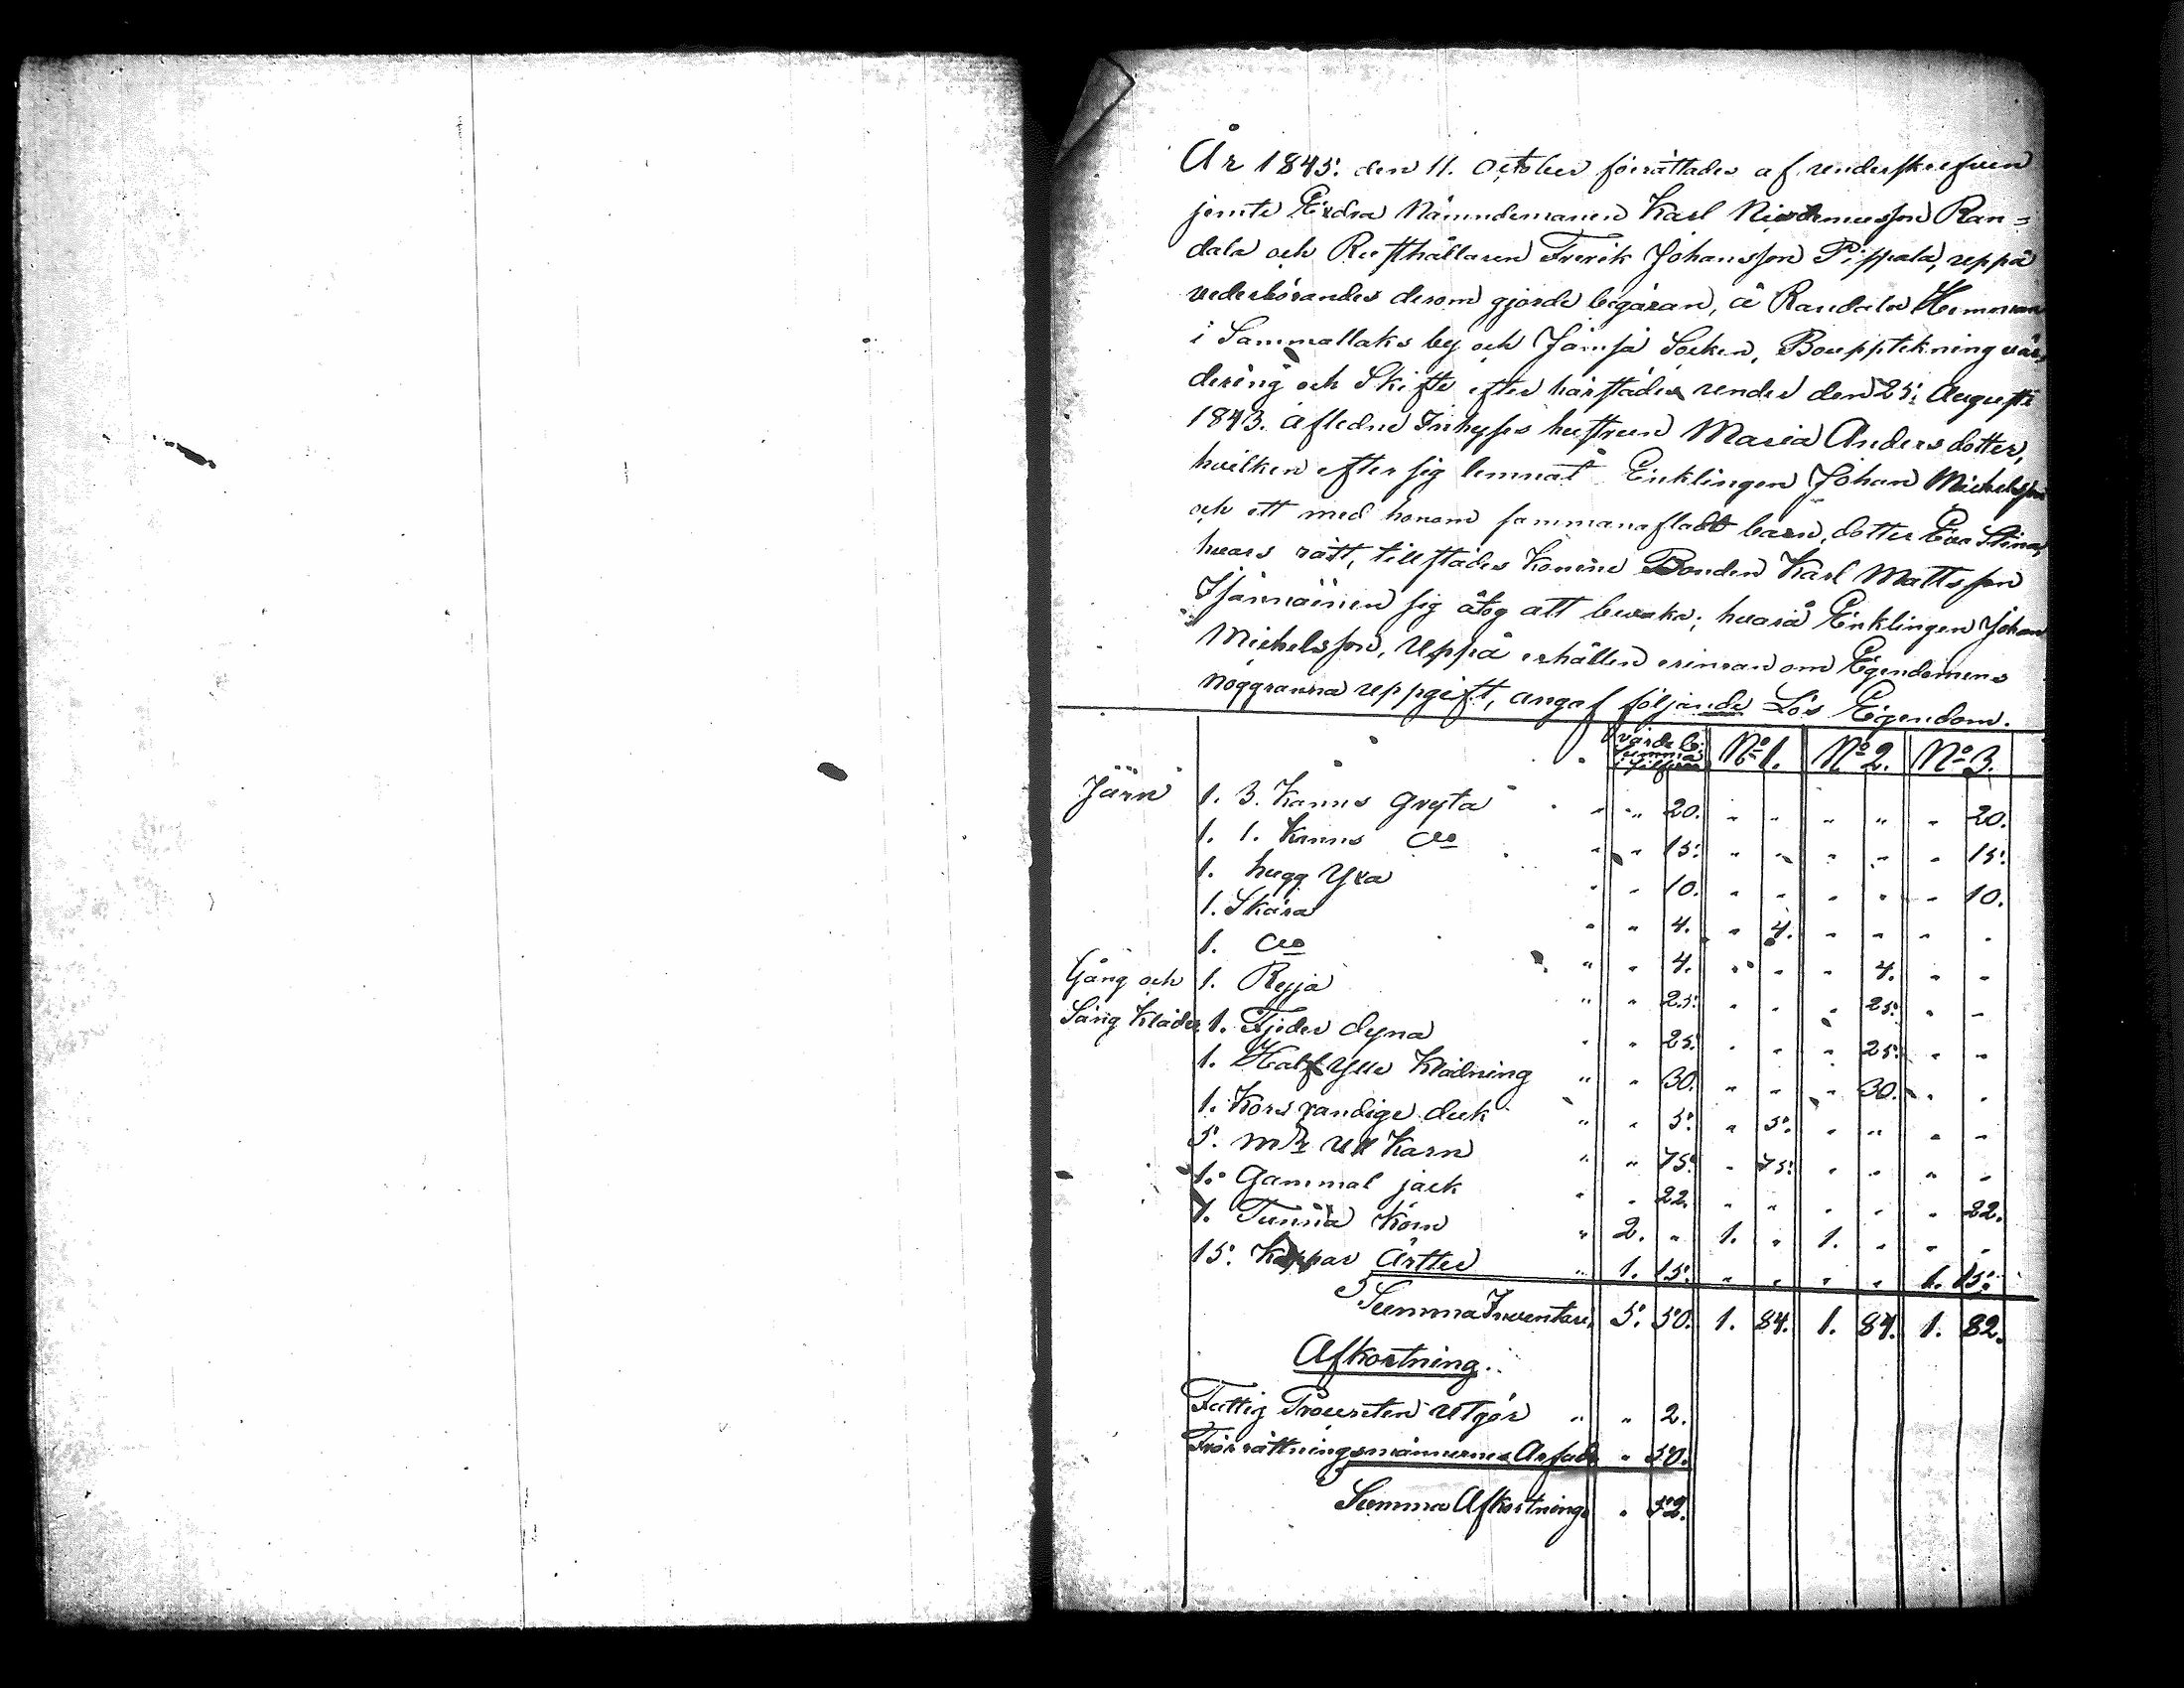 År 1845. den 11. October förrättades af underskrefven
jemte Edra Nämndemannen Karl Nicodemusson Ran=
dala och Rusthållaren Frerik Johansson Pippala, uppå
vederbörandes derom gjorde begäran, å Randala Hemman
i Sammallaks by och Jämsä Socken, Bouppteckning vär-
dering och Skifte efter härstädes under den 25. Augusti
1843. afledne Inhyses hustrun Maria Andersdotter,
hvilken efter sig lemnat Enklingen Johan Michelsson
och ett med honom sammanafladt barn, dotter Eva Stina,
hvars rätt, tillstädes komne Bonden Karl Mattsson
sig åtog att bevaka; hvarå Enklingen Johan
Michelsson, uppå erhållen erinran om Egendomens
noggranna uppgift, angaf följande Lös Egendom.
värde be: Summa i silfver No 1. No 2. No 3.
Järn 1. 3. Kanns Gryta " " 20. " " " " " 20.
1. 1. Kanns do " " 15. " " " " " 15.
1. hugg Yxa " " 10. " " " " " 10.
1. Skära " " 4. " 4. " " " "
1. do " " 4. " " " 4. " "
Gång och 1. Ryja " " 25. " " " 25. " "
Säng Kläder 1. Fjeder dyna " " 25. " " " 25. " "
1. Half Ylle Klädning " " 30. " " " 30. " "
1. Kors randige duk " " 5. " 5. " " " "
5. mk Ull Karn " " 75. " 75. " " " "
1. Gammal jack " " 22. " " " " " 22.
1. Tunna Korn " 2. " 1. " 1. " " "
15. Kappar Ärtter " 1. 15. " " " " 1. 15.
Summa Inventari 5. 50. 1. 84. 1. 84. 1. 82.
Afkortning.
Fattig Procenten utgör " " 2.
Förrättningsmännernes Arfode " 50.
Summa Afkortning " 52.